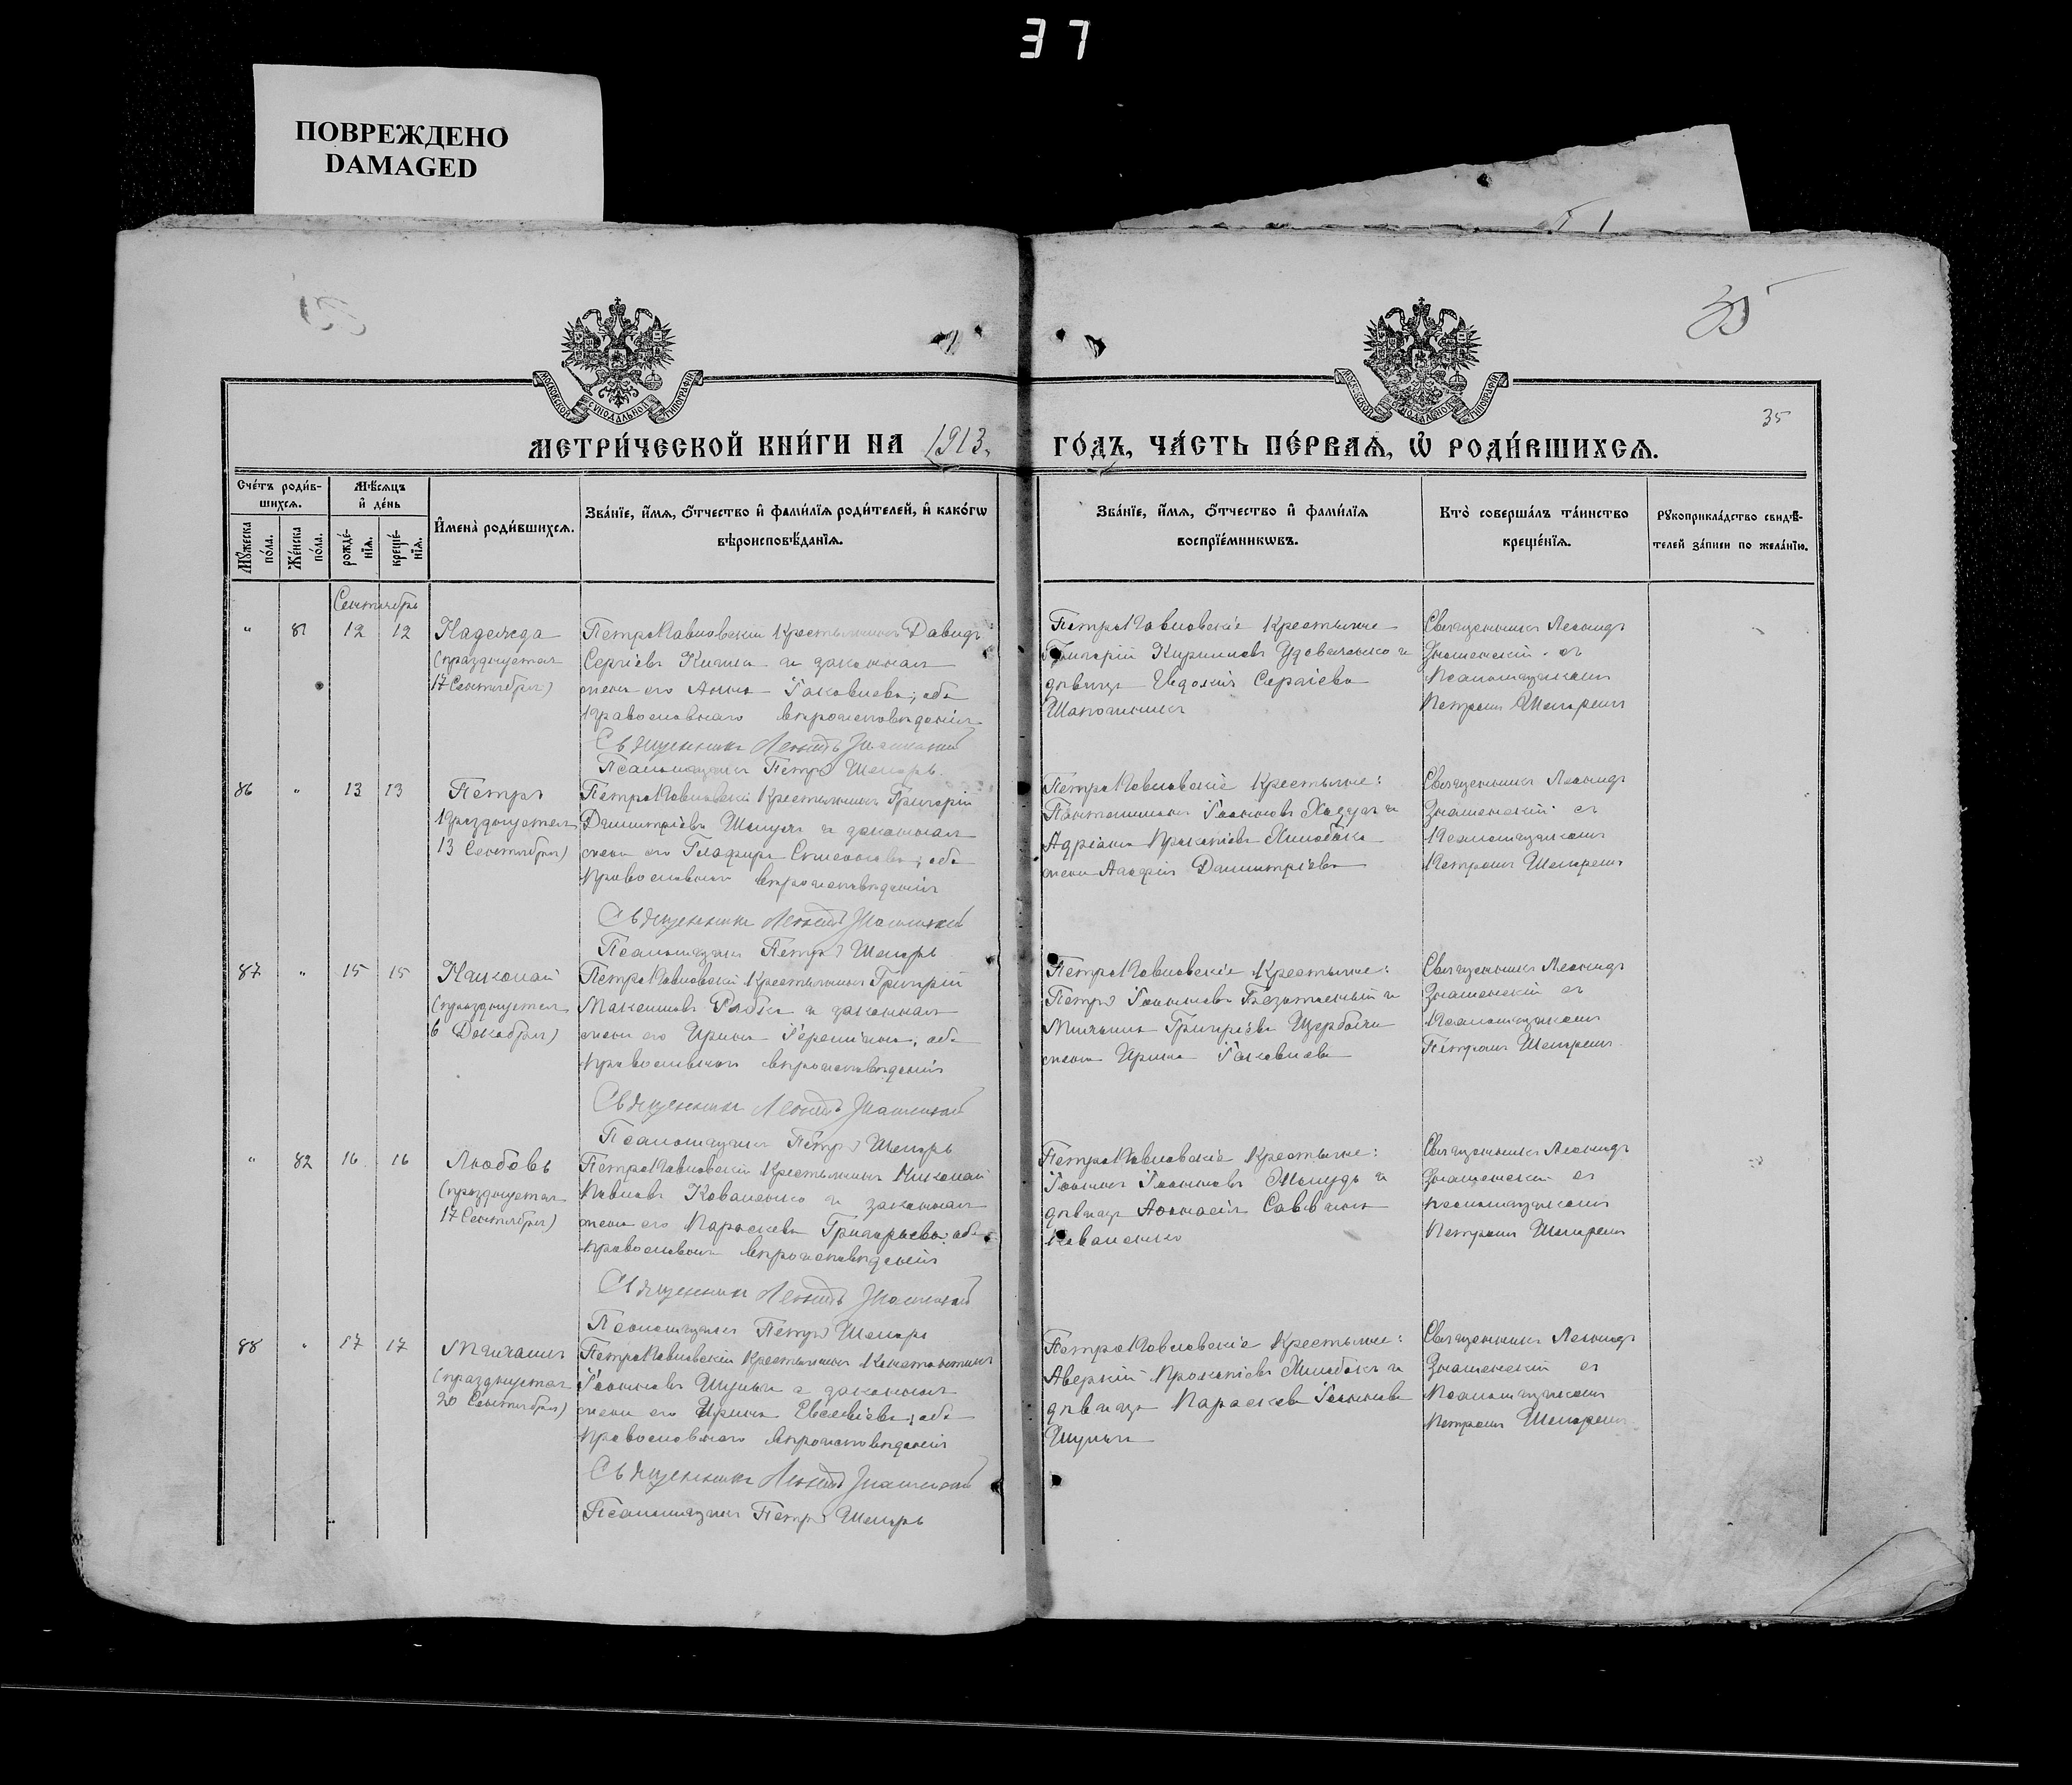 37
ПОВРЕЖДЕНО
DAMAGED
35
35
МОСКОВСКОЙ СѴНОДАЛЬНОЙ ТИПОГРАФІИ
МОСКОВСКОЙ СѴНОДАЛЬНОЙ ТИПОГРАФІИ
МЕТРИ́ЧЕСКОЙ КНИ́ГИ НА 1913 ГО́ДЪ, ЧА́СТЬ ПЕ́РВАѦ, Ѡ҆ РОДИ́ВШИХСѦ.
Сче́тъ роди́в-
шихсѧ.
Мѣ́сѧцъ
и҆ де́нь
Мꙋ́жеска по́ла.
Же́нска по́ла.
рожде́-
нїѧ.
креще́-
нїѧ.
И҆мена̀ роди́вшихсѧ.
Зва́нїе, и҆́мѧ, ѻ҆́тчество и҆ фами́лїѧ роди́телей, и҆ како́гѡ
вѣроисповѣ́данїѧ.
Зва́нїе, и҆́мѧ, ѻ҆́тчество и҆ фами́лїѧ
воспрїе́мникѡвъ.
Кто̀ соверша́лъ та́инство
креще́нїѧ.
Рꙋкоприкла́дство свидѣ́-
телей за́писи по жела́нїю.
Сентябрь
" 81 12 12
Надежда
(празднуется
17 Сентября)
ПетроПавловскій крестьянинъ Давидъ
Сергіевъ и законная
жена его Анна Іаковлева, оба
православнаго вѣроисповѣданія
Священникъ Леонидъ Знаменскій
Псаломщикъ Петръ
ПетроПавловскіе крестьяне
Григорій Кирилловъ Удовенко и
дѣвица Евдокія Сергіева
Священникъ Леонидъ
Знаменскій съ
псаломщикомъ
Петромъ
86 " 13 13
Петръ
празднуется
13 Сентября)
ПетроПавловскій крестьянинъ Григорій
Димитріевъ и законная
жена его Гликерія оба
православнаго вѣроисповѣданія
Священникъ Леонидъ Знаменскій
Псаломщикъ Петръ
ПетроПавловскіе крестьяне:
Пантелимонъ Іоанновъ и
Адріана Прокопіева
жена Агафія Димитріева
Священникъ Леонидъ
Знаменскій съ
псаломщикомъ
Петромъ
87 " 15 15
Николай
(празднуется
6 Декабря)
ПетроПавловскій крестьянинъ Григорій
Максимовъ и законная
жена его Ирина оба
православнаго вѣроисповѣданія
Священникъ Леонидъ Знаменскій
Псаломщикъ Петръ
ПетроПавловскіе крестьяне:
Петръ и
Михаила Григоріева
жена Ирина Іаковлева
Священникъ Леонидъ
Знаменскій съ
псаломщикомъ
Петромъ
" 82 16 16
Любовь
(празднуется
17 Сентября)
ПетроПавловскій крестьянинъ Николай
Павловъ Коваленко и законная
жена его Параскева Григорьева, оба
православнаго вѣроисповѣданія
Священникъ Леонидъ Знаменскій
Псаломщикъ Петръ
ПетроПавловскіе крестьяне:
Іоаннъ Іоанновъ и
дѣвица Саввина
Коваленко
Священникъ Леонидъ
Знаменскій съ
псаломщикомъ
Петромъ
88 " 17 17
Михаилъ
(празднуется
20 Сентября)
ПетроПавловскій крестьянинъ Константинъ
Іоанновъ и законная
жена его Ирина Евсевіева, оба
православнаго вѣроисповѣданія
Священникъ Леонидъ Знаменскій
Псаломщикъ Петръ
ПетроПавловскіе крестьяне:
Аверкій Прокопіевъ и
дѣвица Параскева Іоаннова
Священникъ Леонидъ
Знаменскій съ
псаломщикомъ
Петромъ